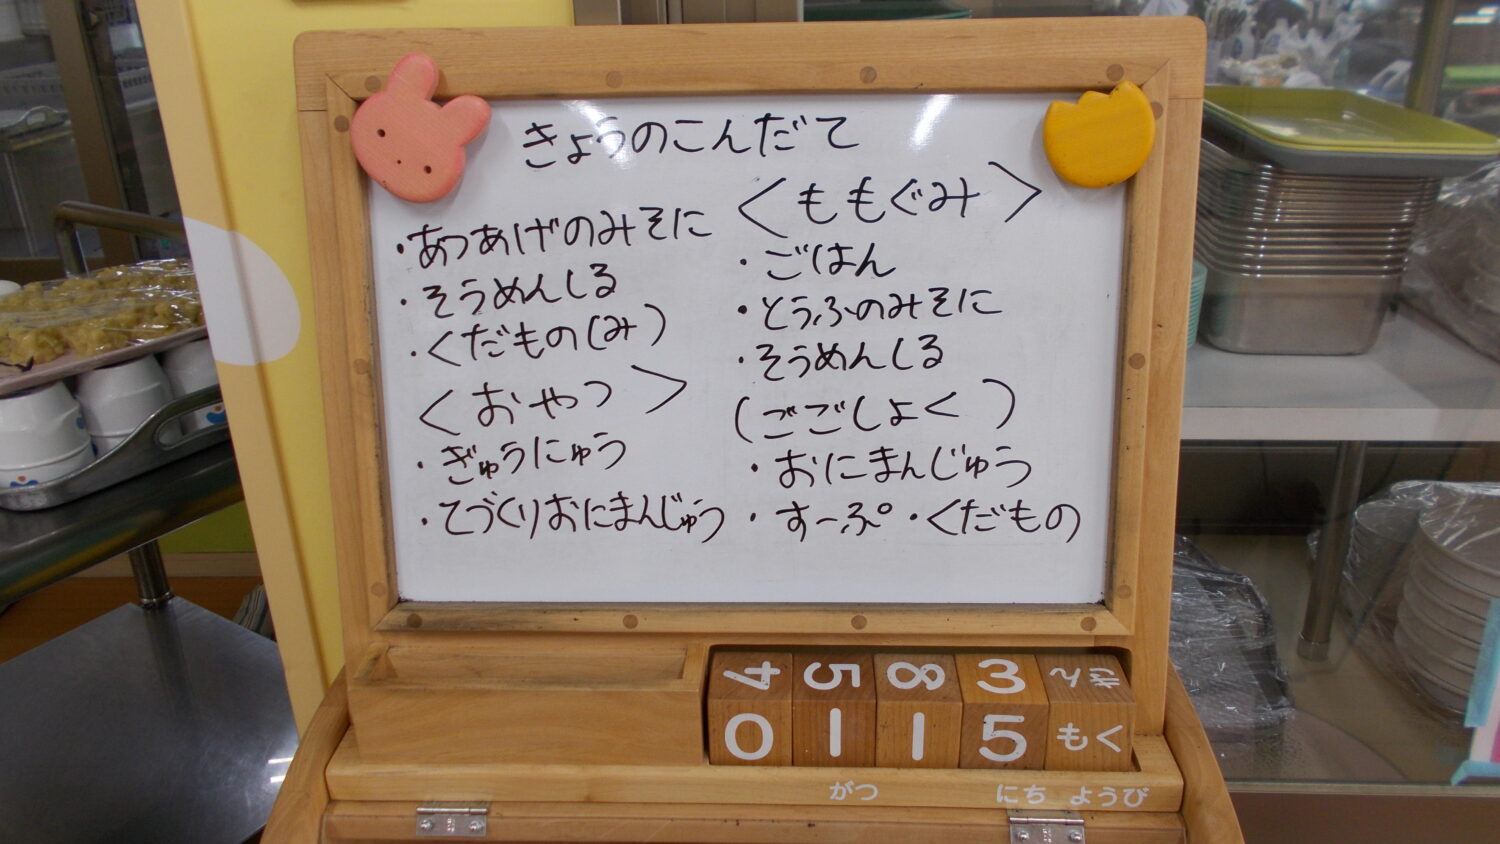 きょうのこんだて
・あつあげのみそに
・そうめんしる
・くだもの(み)
<おやつ>
・ぎゅうにゅう
・てづくりおにまんじゅう
<ももぐみ>
・ごはん
・とうふのみそに
・そうめんしる
(ごごしょく)
・おにまんじゅう
・すーぷ・くだもの
4 5 8 3 きん
0 1 1 5 もく
がつ にち ようび